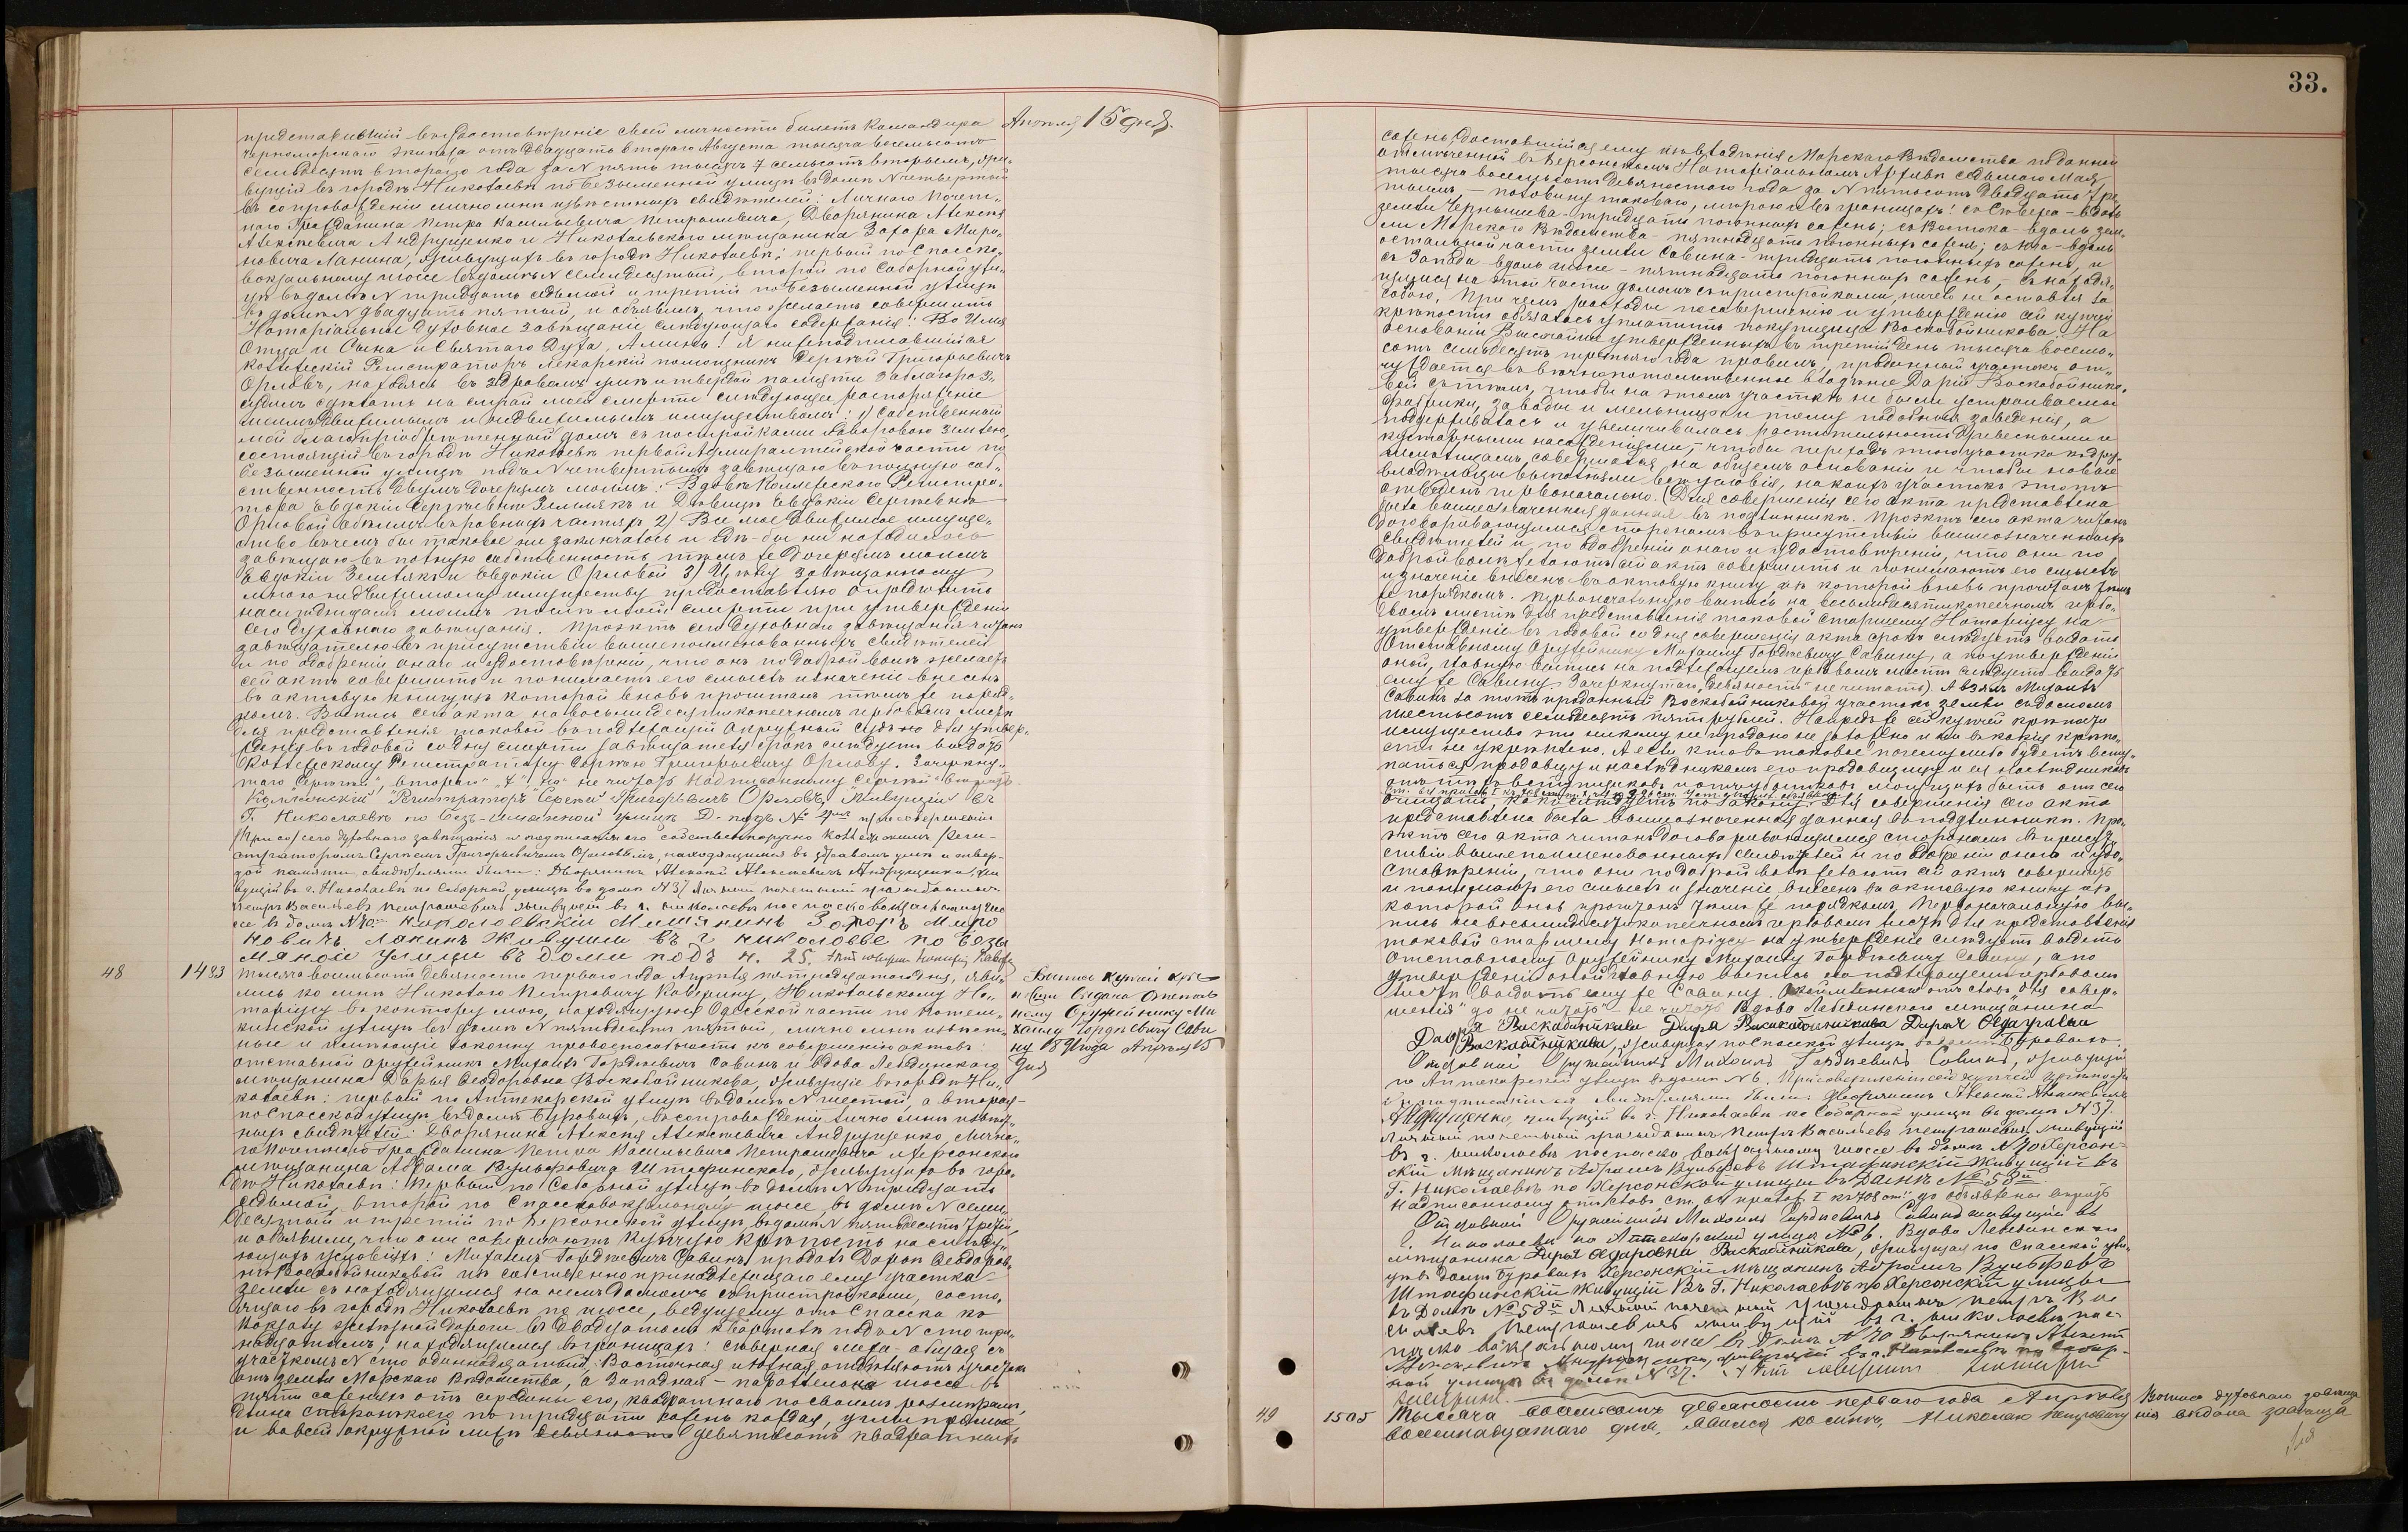 33.
Апрѣля 15 дня.
представившій въ удостовѣреніе своей личности билетъ Командира
Черноморскаго экипажа отъ двадцать втораго Августа тысяча восемьсотъ
семьдесятъ втораго года за N пять тысячъ семьсотъ вторымъ, жи-
вущій въ городѣ Николаевѣ по безъименной улицѣ въ домѣ N четвертый
въ сопровожденіи лично мнѣ извѣстныхъ свидѣтелей: Личнаго Почет-
наго Гражданина Петра Васильевича Петрашевича, Дворянина Алексѣя
Алексѣевича Андрущенко и Николаевскаго мѣщанина Захара Миро-
новича Лакина, живущихъ въ городѣ Николаевѣ; первый по Спасско-
вокзальному шоссе въ домѣ N семидесятый, второй по Соборной ули-
цѣ въ домѣ N тридцать седьмой и третій по безъименной улицѣ
въ домѣ N двадцать пятый, и объявилъ, что желаетъ совершить
Нотаріальное духовное завѣщаніе слѣдующаго содержанія: Во Имя
Отца и Сына и Святаго Духа, Аминь! Я нижеподписавшійся
Коллежскій Регистраторъ Лекарскій помощникъ Сергѣй Григорьевичъ
Орловъ, находясь въ здравомъ умѣ и твердой памяти заблагораз-
судилъ сдѣлать на случай моей смерти слѣдующее распоряженіе
моимъ движимымъ и недвижимымъ имуществомъ: 1) Собственный
мой благопріобрѣтенный домъ съ постройками и дворовою землею,
состоящій въ городѣ Николаевѣ первой Адмиралтейской части по
безъименной улицѣ подъ N четвертымъ завѣщаю въ полную соб-
ственность двумъ дочерямъ моимъ: Вдовѣ Коллежскаго Регистра-
тора Евдокіи Сергѣевнѣ Землякъ и Дѣвицѣ Евдокіи Сергѣевнѣ
Орловой обѣимъ въ равныхъ частяхъ 2) Все мое движимое имуще-
ство въ чемъ бы таковое ни заключалось и гдѣ-бы ни находилось
завѣщаю въ полную собственность тѣмъ же дочерямъ моимъ
Евдокіи Землякъ и Евдокіи Орловой 3) Цѣну завѣщанному
мною недвижимому имуществу предоставляю опредѣлить
наслѣдницамъ моимъ послѣ моей смерти при утвержденіи
сего духовнаго завѣщанія. Проэктъ сего духовнаго завѣщанія читанъ
завѣщателю въ присутствіи вышепоименованныхъ свидѣтелей
и по одобреніи онаго и удостовѣреніи, что онъ по доброй волѣ желаетъ
сей актъ совершить и понимаетъ его смыслъ и значеніе внесенъ
въ актовую книгу, изъ которой вновь прочитанъ тѣмъ же поряд-
комъ. Выпись сего акта на восьмидесятикопеечномъ гербовомъ листѣ
для представленія таковой въ подлежащій Окружный Судъ на для утвер-
жденія въ годовой со дня смерти завѣщателя срокъ слѣдуетъ выдать
Коллежскому Регистратору Сергѣю Григорьевичу Орлову. Зачеркну-
таго не читать. Надписанному вѣрить
Коллежскій Регистраторъ Сергей Григорьевичъ Орловъ, живущій въ
Г. Николаевѣ по Безъ-имянной улицѣ Д. подъ №
При сего духовнаго завѣщанія и подписаніи его собственноручно Коллежскимъ Реги-
страторомъ Сергѣемъ Григорьевичемъ Орловымъ, находящимся въ здравомъ умѣ и твер-
дой памяти, свидѣтелями были: Дворянинъ Алексѣй Алексѣевичъ Андрущенко, жи-
вущій въ г. Николаевѣ по Соборной улицѣ въ домѣ N 37. Личный почетный гражданинъ
Петръ Васильевъ Петрашевичъ живущій въ г. Николаевѣ по спаско вокзальному шос-
се въ домѣ N 70. николоевскій Мещанинъ Захаръ Миро
новичъ Лакинъ живущи въ г николоеве по безы
мяной улицы въ доми подъ н. 25.
48
1483
Тысяча восемьсотъ девяносто перваго года Апрѣля пятнадцатаго дня, яви-
лись ко мнѣ Николаю Петровичу Каверину, Николаевскому Но-
таріусу въ контору мою, находящуюся Одесской части по Потем-
кинской улицѣ въ домѣ N пятьдесятъ пятый, лично мнѣ извѣст-
ные и имѣющіе законную правоспособность къ совершенію актовъ:
отставной оружейникъ Михаилъ Гордѣевичъ Савинъ и вдова Лебединскаго
мѣщанина Дарья Ѳеодоровна Воскобойникова, живущіе въ городѣ Ни-
колаевѣ: первый по Аптекарской улицѣ въ домѣ N шестой, а вторая-
по Спасской улицѣ, въ домѣ Буровыхъ, въ сопровожденіи лично мнѣ извѣст-
ныхъ свидѣтелей: Дворянина Алексѣя Алексѣевича Андрущенко, Лична-
го Почетнаго Гражданина Петра Васильевича Петрашевича и Херсонскаго
мѣщанина Абрама Вульфовича Штафинскаго, живущихъ въ горо-
дѣ Николаевѣ: первый по Соборной улицѣ въ домѣ N тридцать
седьмой, второй по Спасско вокзальному шоссе, въ домѣ N семи-
десятый и третій по Херсонской улицѣ, въ домѣ N пятьдесятъ третій,
и объявили, что они совершаютъ Купчую Крѣпость на слѣду-
ющихъ условіяхъ: Михаилъ Гордѣевичъ Савинъ, продалъ Дарьѣ Ѳеодоров-
нѣ Воскобойниковой изъ собственно принадлежащаго ему участка
земли съ находящимся на немъ домомъ съ пристройками, состо-
ящаго въ городѣ Николаевѣ по шоссе, ведущему отъ Спасска къ
вокзалу желѣзной дороги въ двадцатомъ кварталѣ подъ N сто три-
надцатымъ, находящимся въ границахъ: сѣверная межа общая съ
участкомъ N сто одиннадцатый; Восточная и южная отдѣляютъ участокъ
отъ земли Морскаго Вѣдомства, а Западная - параллельна шоссе въ
пяти саженяхъ отъ середины его, квадратнаго по своимъ размѣрамъ,
длина сторонъ коего по тридцати сажень каждая, углы прямые
и во всей окружной межѣ девятьсотъ квадратныхъ
Выпись купчей крѣ-
пости выдана Отстав-
ному Оружейнику Ми-
хаилу Гордѣевичу Сави
ну 1891 года Апрѣля 15
дня
сажень, доставшійся ему изъ владѣнія Морскаго Вѣдомства по данной
отмѣченной въ Херсонскомъ Нотаріальномъ Архивѣ седьмаго Мая
тысяча восемьсотъ девяностаго года за N пятьсотъ двадцать тре-
тьимъ, - половину таковаго, мѣрою и въ границахъ: съ Сѣвера - вдоль
земли Чернышева - тридцать погонныхъ сажень; съ Востока - вдоль зем-
ли Морскаго Вѣдомства - пятнадцать погонныхъ сажень; съ Юга - вдоль
остальной части земли Савина - тридцать погонныхъ сажень и
съ Запада вдоль шоссе - пятнадцать погонныхъ сажень, - съ находя-
щимся на этой части домомъ съ пристройками, ничего не оставляя за
собою. При чемъ расходы по совершенію и утвержденію сей купчей
крѣпости обязалась уплатить покупщица Воскобойникова. На
основаніи Высочайше утвержденныхъ въ третій день тысяча восемь-
сотъ семьдесятъ третьяго года правилъ, проданный участокъ от-
чуждается въ вѣчнопотомственное владѣніе Дарьи Воскобойнико-
вой съ тѣмъ, чтобы на этомъ участкѣ не были устроиваемы
фабрики, заводы и мельницы и тому подобныя заведенія, а
поддерживалась и увеличивалась растительность древесными и
кустарными насажденіями, - чтобы переходъ этого участка къ дру-
гимъ лицамъ, совершался на общемъ основаніи и чтобы новые
владѣльцы выполняли всѣ условія, на коихъ участокъ этотъ
отведенъ первоначально. (Для совершенія сего акта представлена
была вышеозначенная данная въ подлинникѣ. Проэктъ сего акта читанъ
договаривающимся сторонамъ въ присутствіи вышеозначенныхъ
свидѣтелей и по одобреніи онаго и удостовѣреніи, что они по
доброй волѣ желаютъ сей актъ совершить и понимаютъ его смыслъ
и значеніе внесенъ въ актовую книгу, изъ которой вновь прочитанъ тѣмъ
же порядкомъ. Первоначальную выпись на восьмидесятикопеечномъ гербо-
вомъ листѣ для представленія таковой Старшему Нотаріусу на
утвержденіе въ годовой со дня совершенія акта срокъ слѣдуетъ выдать
Отставному Оружейнику Михаилу Гордѣевичу Савину, а по утвержденіи
оной, главную выпись на подлежащемъ гербовомъ листѣ слѣдуетъ выдать
ему же Савину. Зачеркнутаго „девяносто" не читать). А взялъ Михаилъ
Савинъ за тотъ проданный Воскобойниковой участокъ земли съ домомъ
шестьсотъ семьдесятъ пять рублей. Напредь же сей купчей крѣпости
имущество это никому не продано не заложено и ни въ какія крѣпо-
сти не укрѣплено. А если кто въ таковое почему либо будетъ всту-
паться продавцу и наслѣдникамъ его продавщицу и ея наслѣдниковъ
отъ тѣхъ вступщиковъ и отъ убытковъ могущихъ быть отъ сего
очищать, какъ слѣдуетъ по закону. Для совершенія сего акта
представлена была вышеозначенная данная въ подлинникѣ. Про-
эктъ сего акта читанъ договаривающимся сторонамъ въ присут-
ствіи вышепоименованныхъ свидѣтелей и по одобреніи онаго и удо-
стовѣреніи, что они по доброй волѣ желаютъ сей актъ совершить
и понимаютъ его смыслъ и значеніе, внесенъ въ актовую книгу изъ
которой вновь прочитанъ тѣмъ же порядкомъ, Первоначальную вы-
пись на восьмидесятикопеечномъ гербовомъ листѣ для представленія
таковой старшему Нотаріусу на утвержденіе слѣдуетъ выдать
отставному Оружейнику Михаилу Гордѣевичу Савину, а по
утвержденіи оной главную выпись на подлежащемъ гербовомъ
листѣ выдать ему же Савину. отъ словъ „Для совер-
шенія" до не читать. Вдова Лебединскаго мѣщанина
Дарья Воскабойникова
Воскабойникова, живущая по Спасской улицѣ
Отставной Оружейникъ Михаилъ Гордѣевичъ Савинъ, живущій
по Аптекарской улицѣ въ домѣ N 6. При совершеніи сей купчей крѣпости
и подписаніи свидѣтелями были: Дворянинъ Алексѣй Алексѣевичъ
Андрущенко, живущій въ г. Николаевѣ по Соборной улицѣ въ домѣ N 37.
Личный почетный гражданинъ Петръ Васильевъ Петрашевичъ живущій
въ г. Николаевѣ по спаско вокзальному шоссе въ домѣ N 70 Херсон-
скій Мѣщанинъ Абрамъ Вульфовъ Штафинскій живущій въ
Г. Николаевѣ по Херсонской улицѣ въ домѣ № 53й
Отставной Оружейникъ Михаилъ Гордѣевичъ Савинъ живущій въ
Николаевѣ по Аптекарской улицѣ № 6. Вдова Лебединскаго
мѣщанина Дарья Ѳедаровна Воскабойникова, живущая по Спасской ули-
цѣ въ домѣ Буровыхъ Херсонскій Мѣщанинъ Абрамъ Вульфовъ
Штафинскій живущій въ Г. Николаевѣ по Херсонскій улицы
въ домѣ № 53й Личный почетный гражданинъ Петръ Ва-
сильевъ Петрашевичъ живущій въ г. Николаевѣ по спас-
ско вокзальному шоссе въ домѣ N 70 Дворянинъ Алексѣй
Алексѣевичъ Андрущенко, живущій въ г. Николаевѣ по Собор-
ной улицѣ въ домѣ N 37.
49
1505
Тысяча восемьсотъ девяносто перваго года Апрѣля
восемнадцатаго дня, явился ко мнѣ, Николаю Петровичу
Выпись духовнаго завѣща
нія выдана завѣща